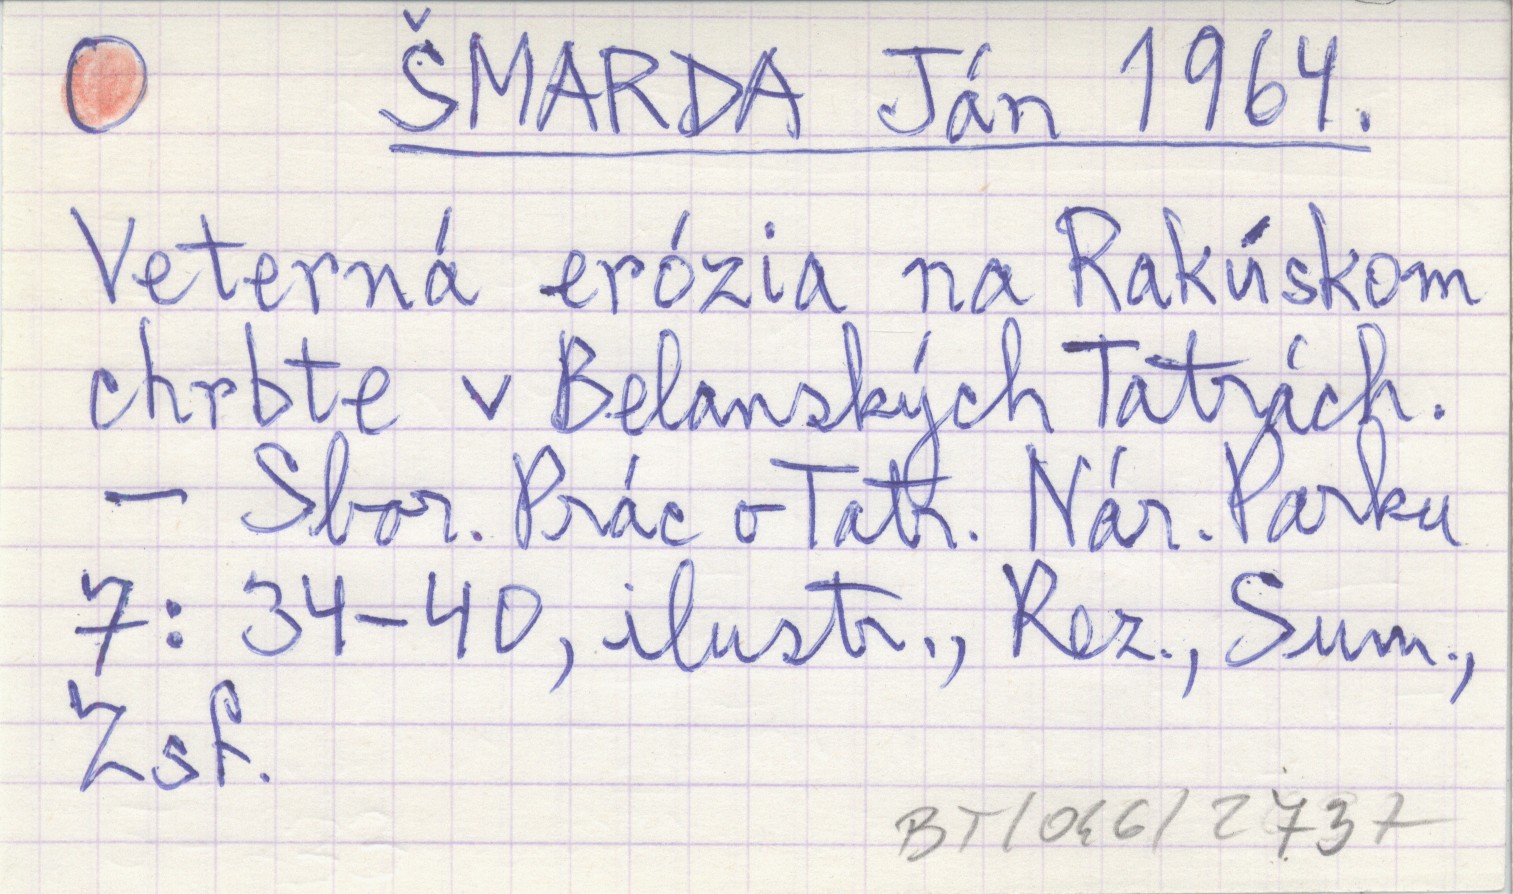 ŠMARDA Ján 1964.
Veterná erózia na Rakúskom
chrbte v Belanských Tatrách.
— Sbor. Prác o Tatr. Nár. Parku
7: 34-40, ilustr., Rez., Sum.,
Zsf.
BT/046/2737